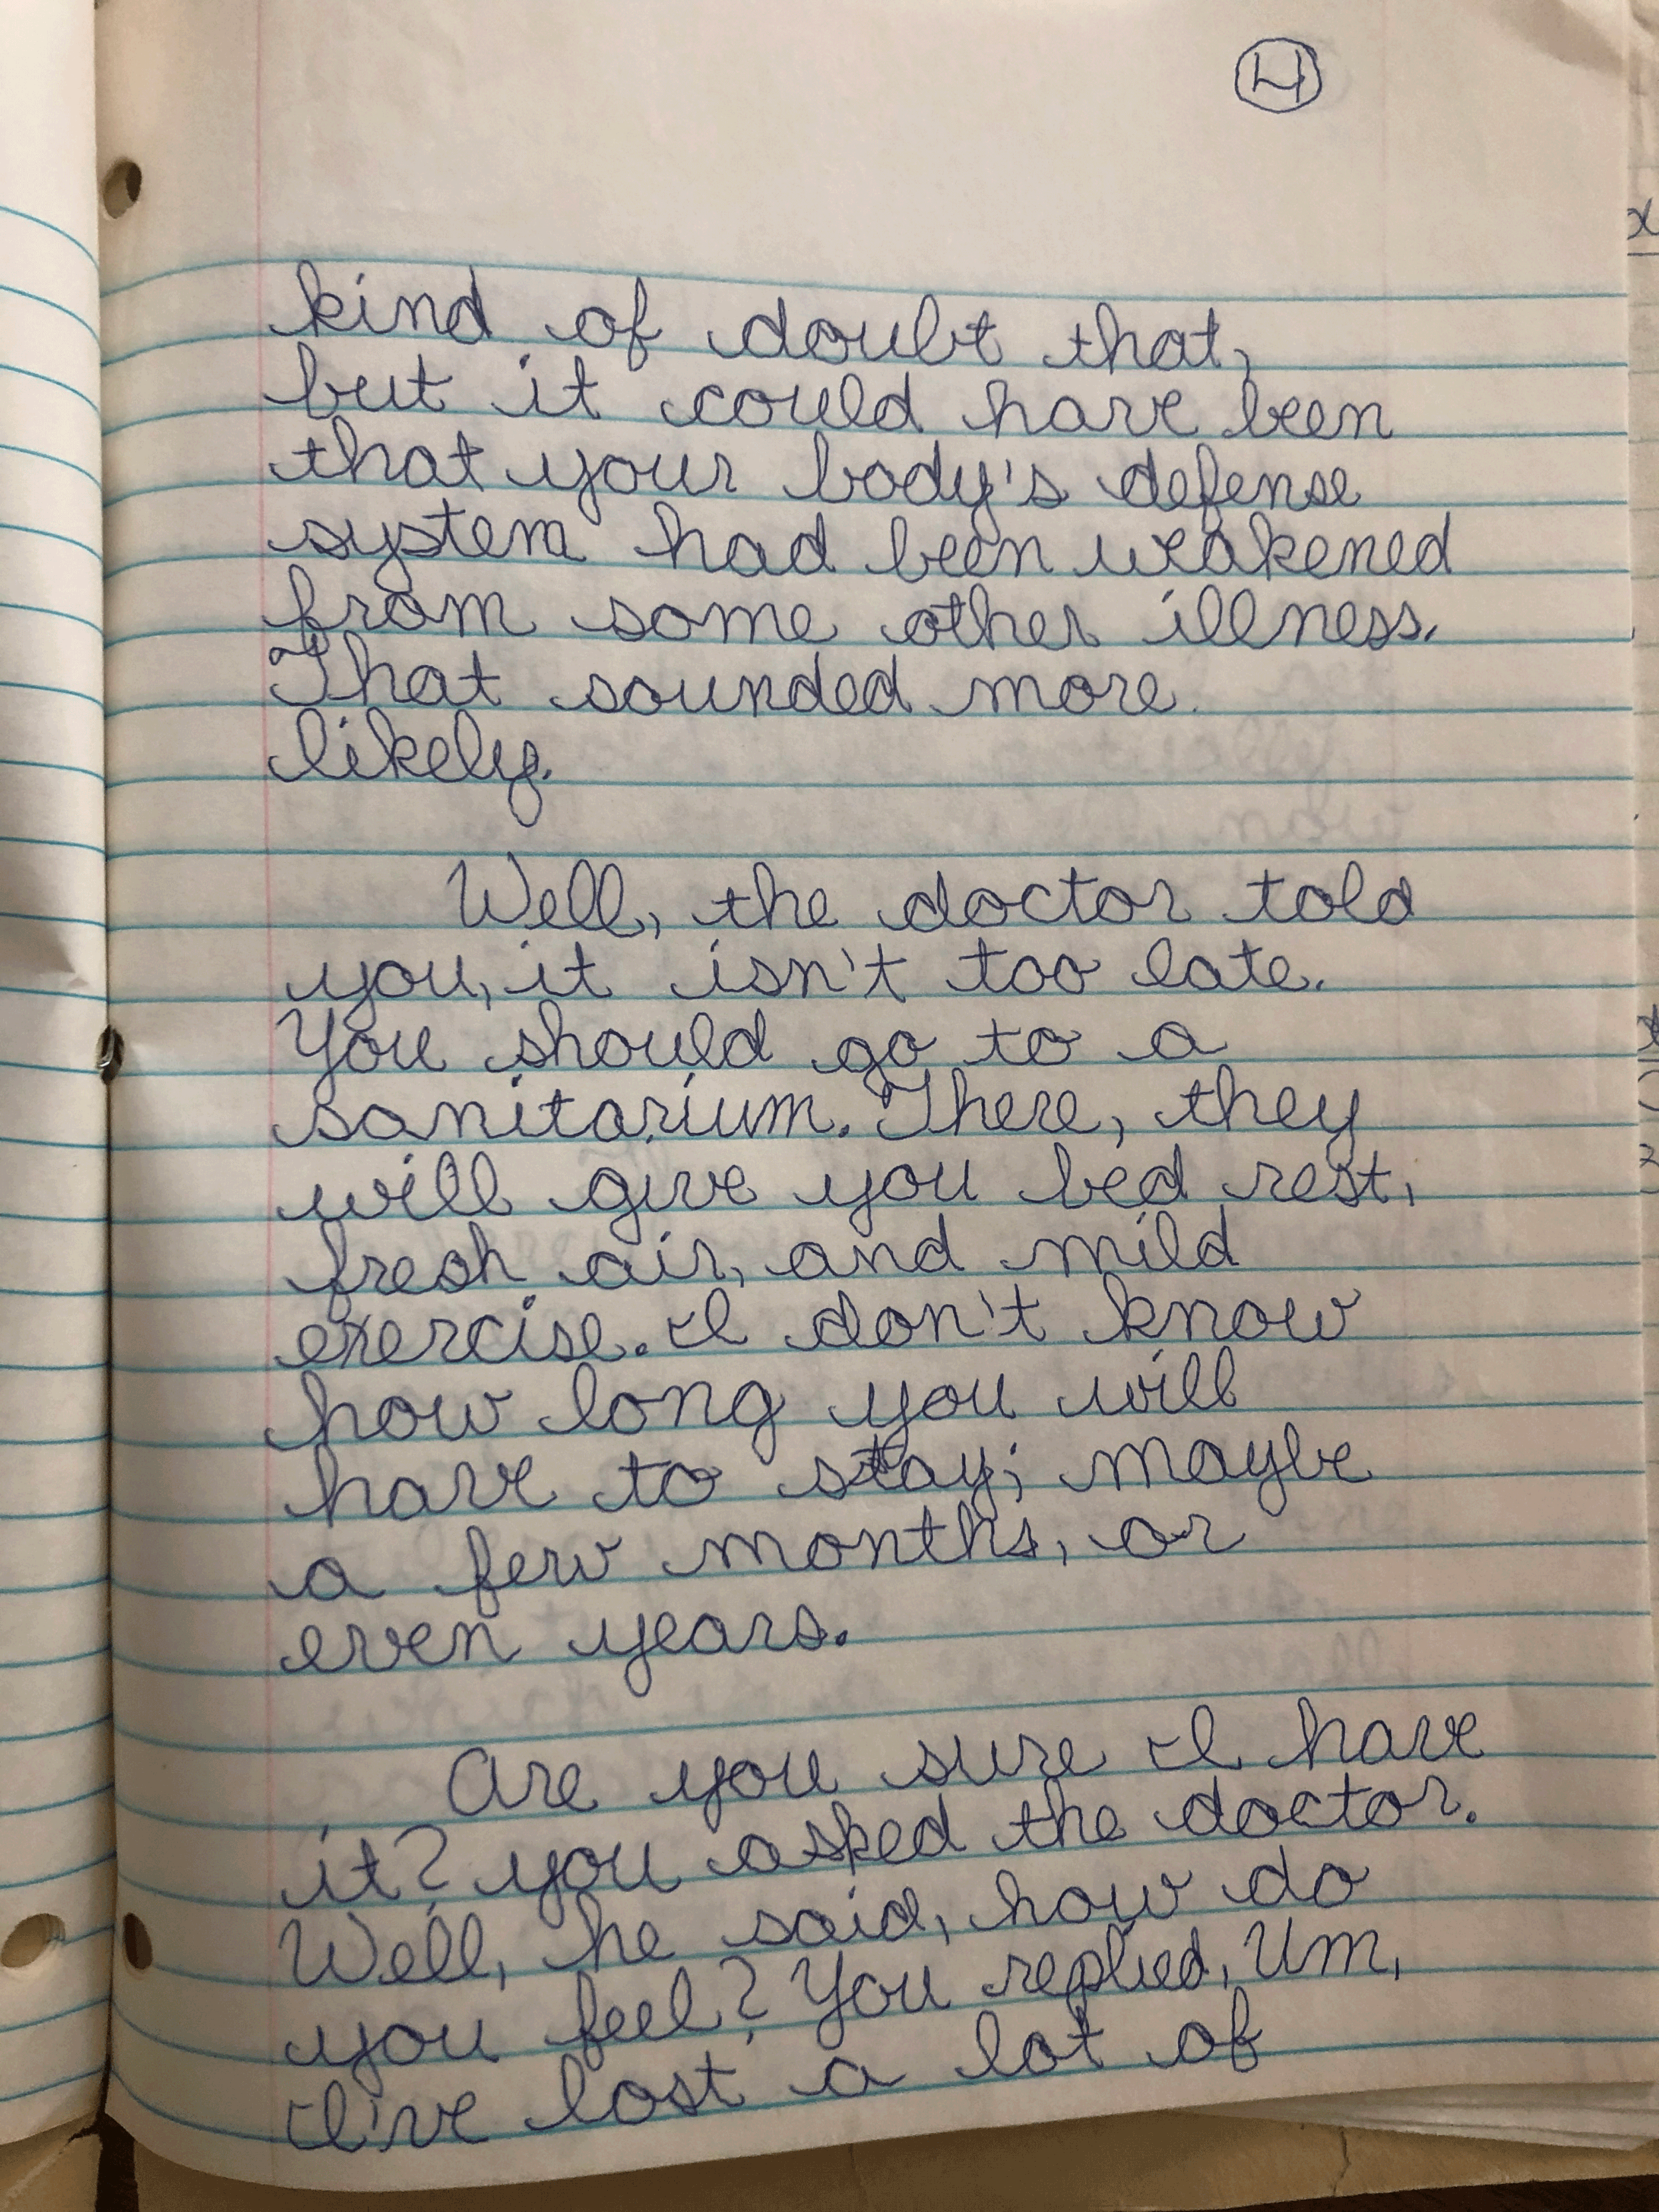 4
kind of doubt that,
but it could have been
that your body's defense
system had been weakened
from some other illness.
That sounded more
likely.
Well, the doctor told
you, it isn't too late.
You should go to a
sanitarium. There, they
will give you bed rest,
fresh air, and mild
exercise. I don't know
how long you will
have to stay; maybe
a few months, or
even years.
Are you sure I have
it? you asked the doctor.
Well, he said, how do
you feel? You replied, Um,
I've lost a lot of